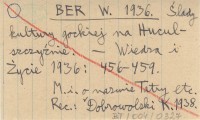 BER W. 1936. Ślady
kultury gockiej na Hucul-
szczyźnie. – Wiedza i
Życie 1936: 456-459.
M.i. o nazwie Tatry etc.
Rec.: Dobrowolski K. 1938.